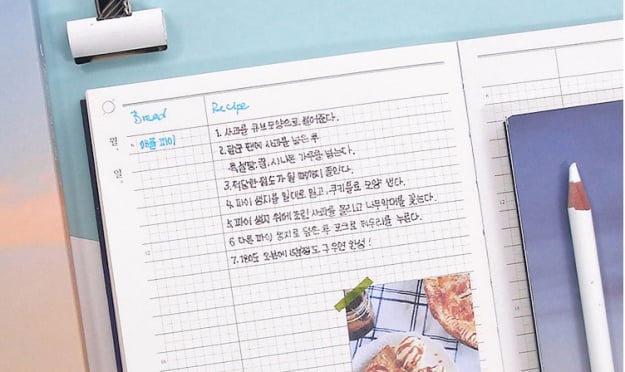 Bread Recipe
월. 애플 파이 1. 사과를 큐브 모양으로 썰어준다.
2. 달군 팬에 사과를 넣은 후
흑설탕, 꿀, 시나몬 가루를 넣는다.
일. 3. 적당한 점도가 될 때까지 졸인다.
4. 파이 생지를 밀대로 밀고, 쿠키틀로 모양 낸다.
5. 파이 생지 위에 조린 사과를 올리고 나무막대를 꽂는다.
6 다른 파이 생지로 덮은 후 포크로 테두리를 누른다.
12 7. 180도 오븐에 15분정도 구우면 완성!